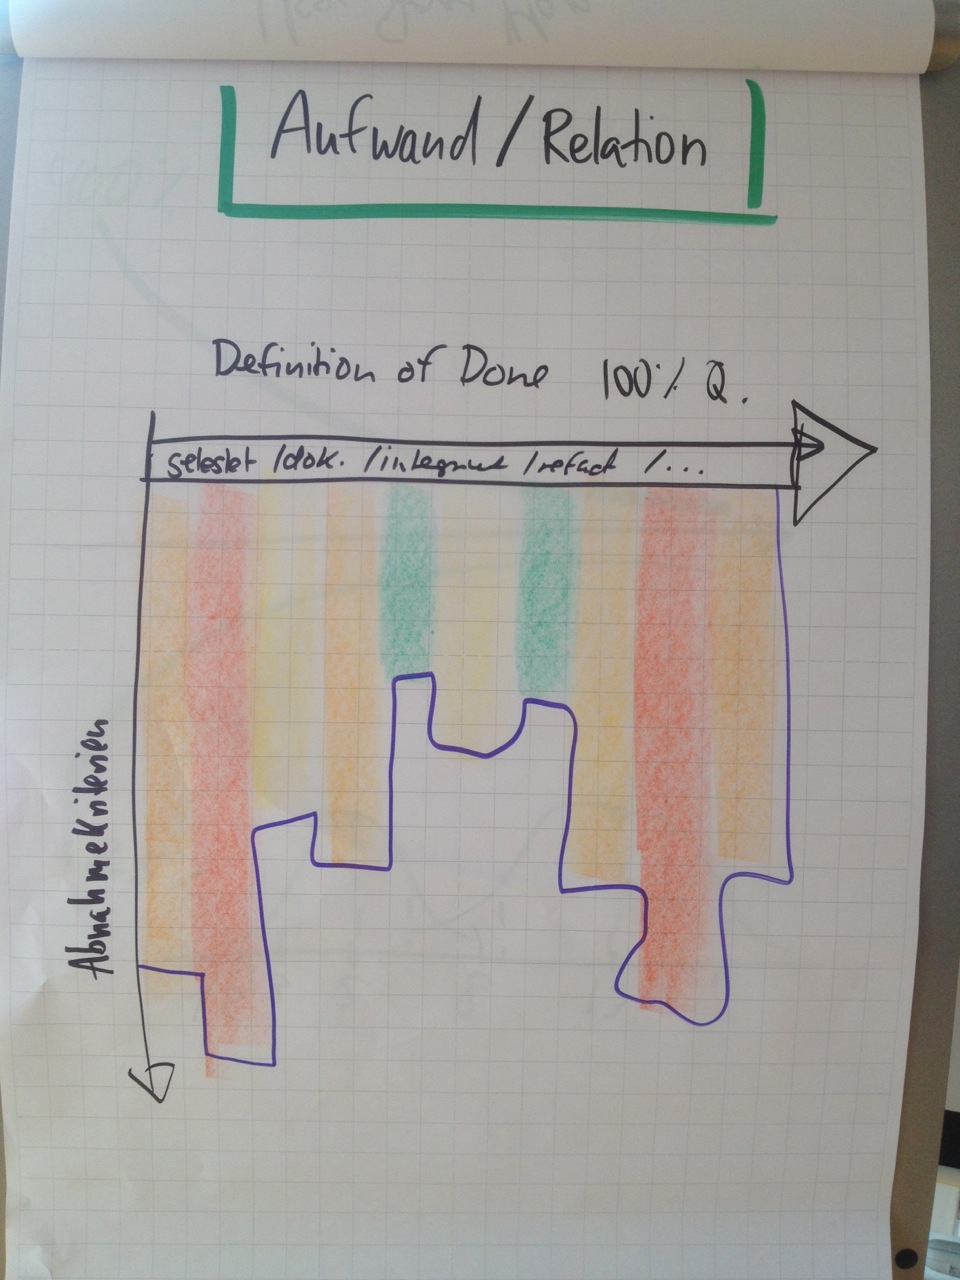 Aufwand / Relation
Definition of Done 100% Q.
getestet /dok. /integriert /refact /...
Abnahmekriterien